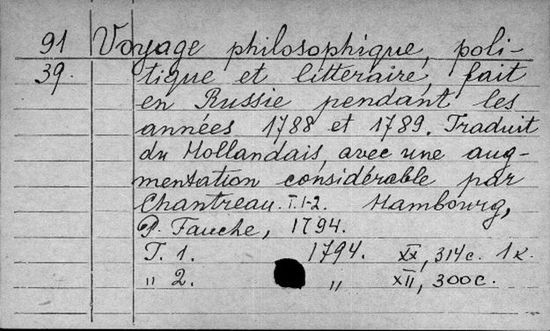 91 Voyage philosophique, poli-
39. tique et littéraire, fait
en Russie pendant les
années 1788 et 1789. Traduit
du Hollandais, avec une aug-
mentation considérable par
Chantreau. T.1-2. Hambourg,
P. Fauche, 1794.
T. 1. 1794. XX, 314c. 1 к.
" 2. " XII, 300c.